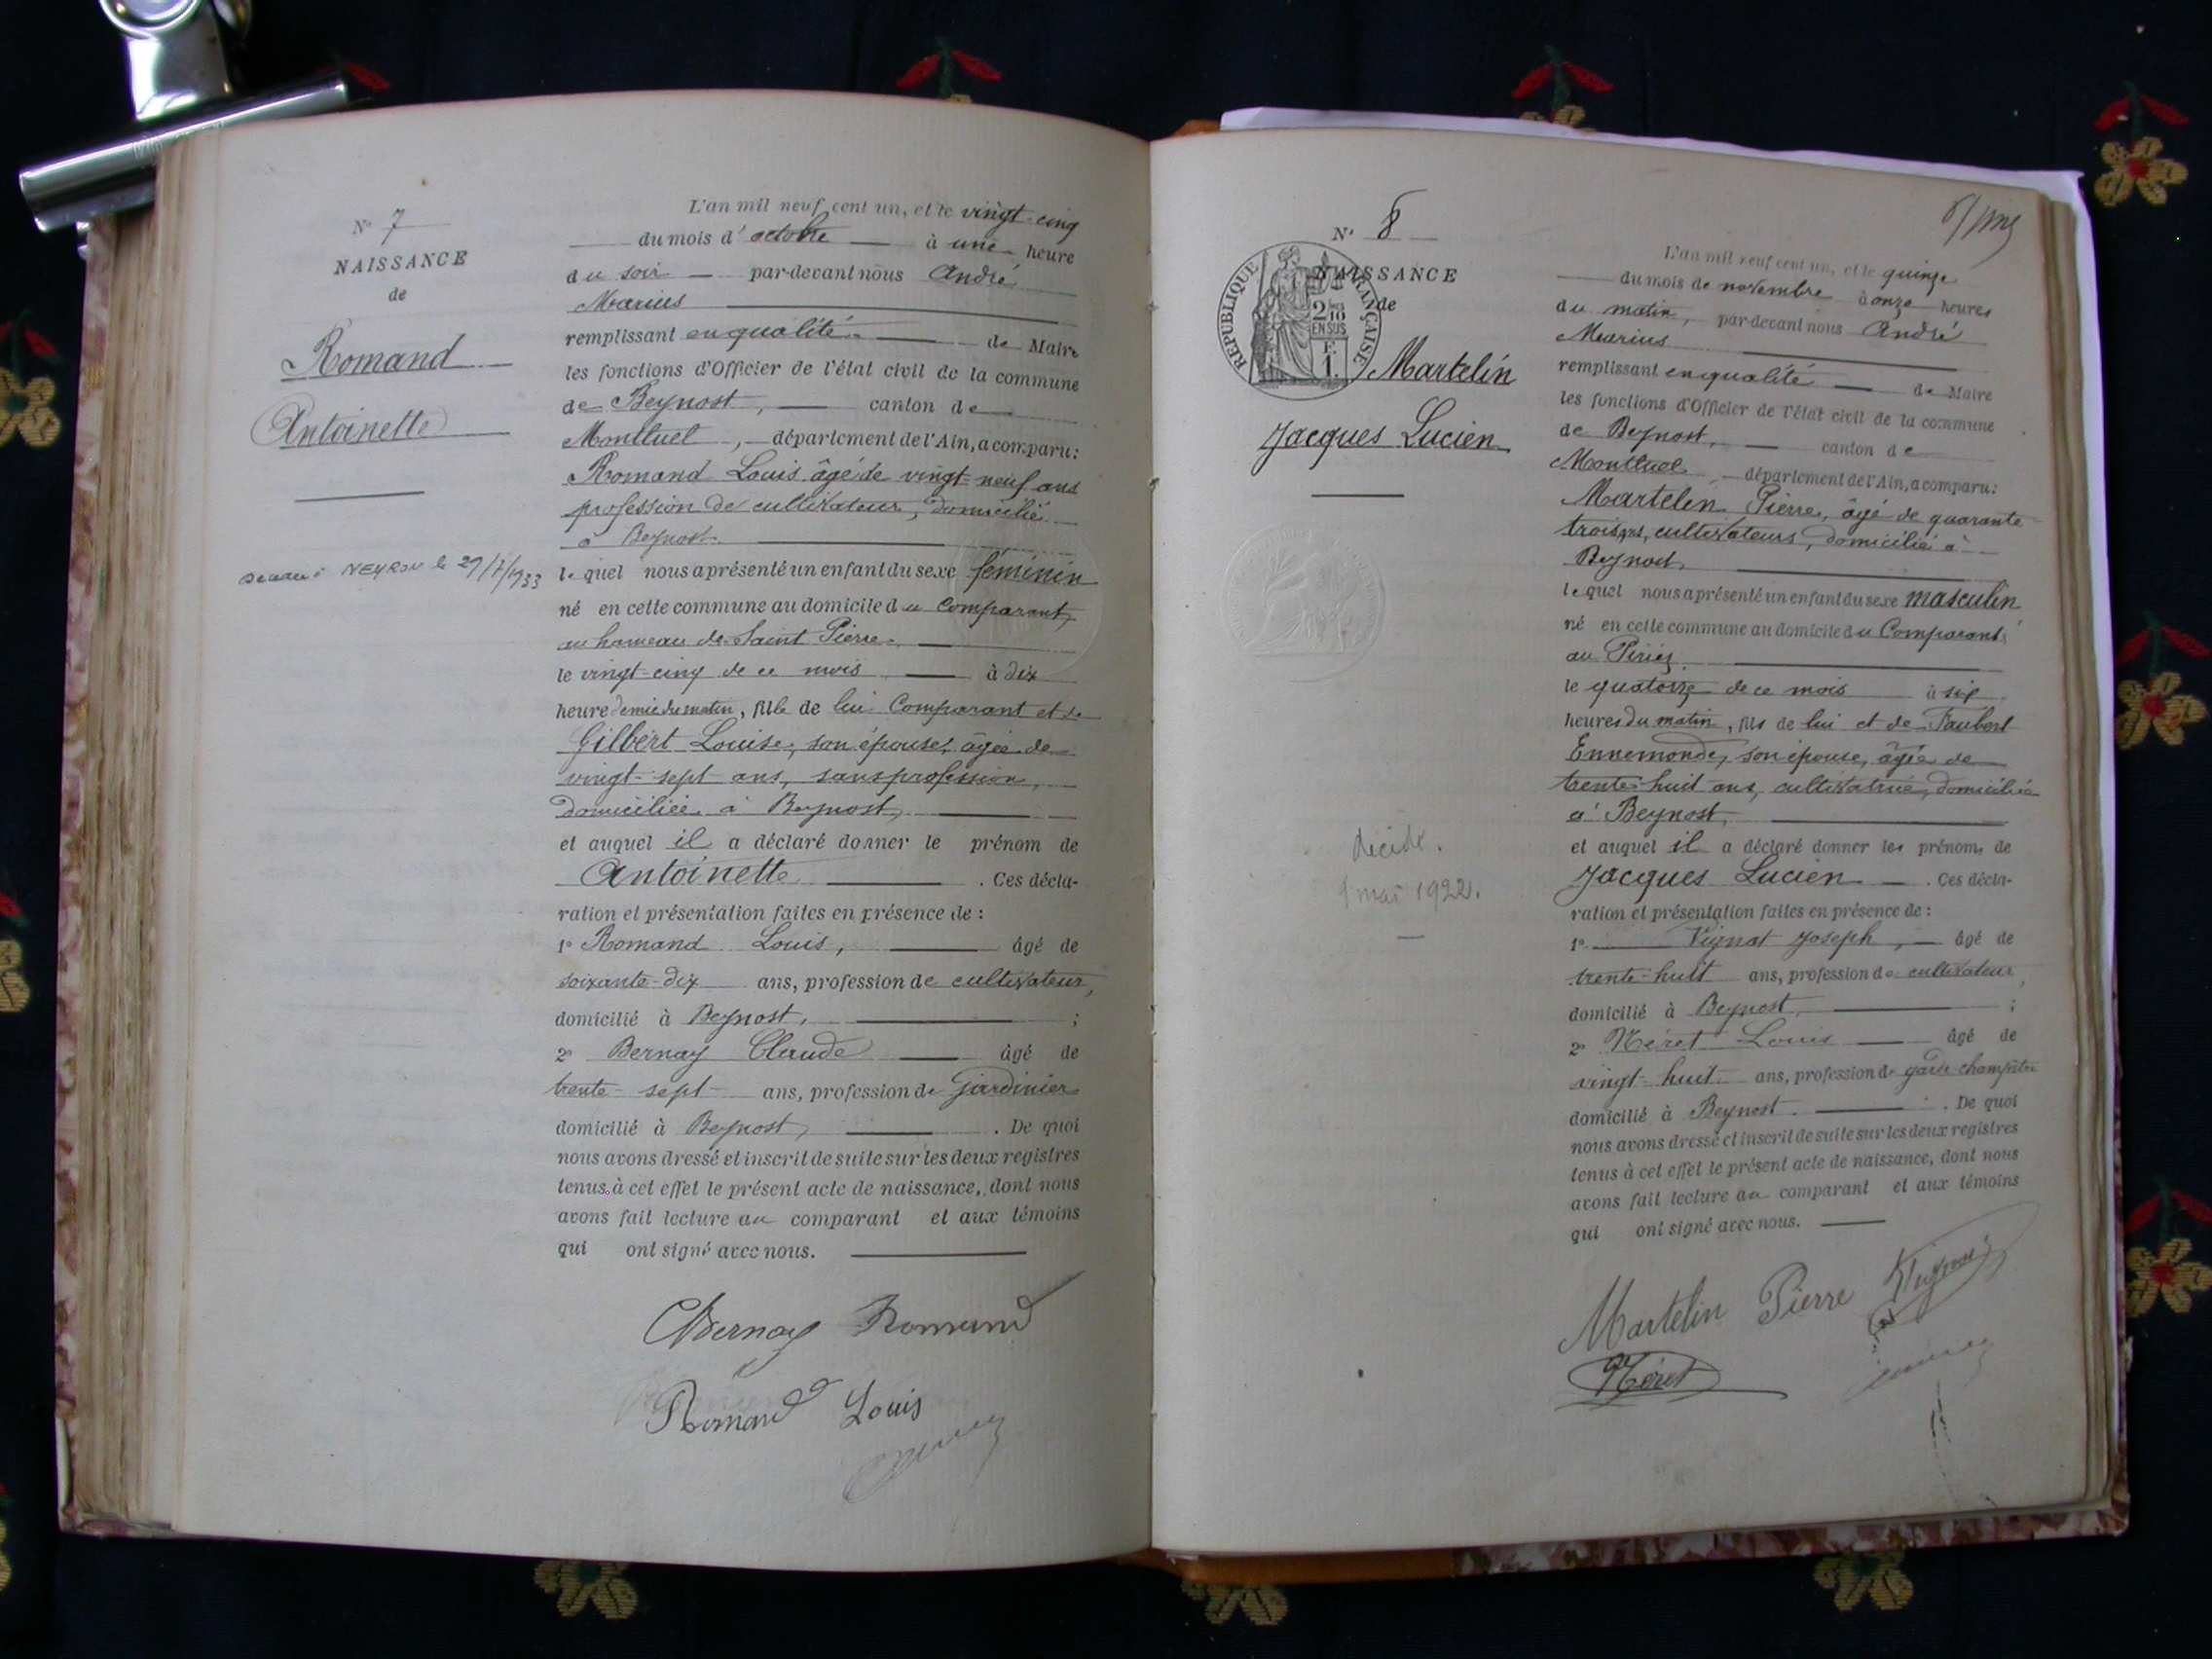 N° 7
NAISSANCE
de
Romand
Antoinette
Décédée à NEYRON le 27/7/1933
L'an mil neuf cent un, et le vingt-cinq
du mois d'octobre à une heure
du soir par-devant nous André
Marius
remplissant en qualité de Maire
les fonctions d'Officier de l'état civil de la commune
de Beynost, canton de
Montluel, département de l'Ain, a comparu:
Romand Louis âgé de vingt-neuf ans
profession de cultivateur, domicilié
à Beynost.
lequel nous a présenté un enfant du sexe féminin
né en cette commune au domicile du Comparant,
au hameau de Saint Pierre.
le vingt-cinq de ce mois à dix
heure demie du matin, fille de lui Comparant et de
Gilbert Louise, son épouse, âgée de
vingt-sept ans, sans profession,
domiciliée à Beynost,
et auquel il a déclaré donner le prénom de
Antoinette. Ces décla-
ration et présentation faites en présence de :
1° Romand Louis, âgé de
soixante-dix ans, profession de cultivateur,
domicilié à Beynost, ;
2° Bernay Claude âgé de
trente-sept ans, profession de Jardinier
domicilié à Beynost, . De quoi
nous avons dressé et inscrit de suite sur les deux registres
tenus à cet effet le présent acte de naissance, dont nous
avons fait lecture au comparant et aux témoins
qui ont signé avec nous.
CBernay Romand
Romand Louis
N° 8
NAISSANCE
de
RÉPUBLIQUE FRANÇAISE
2/10 EN SUS
F. 1.
Martelin
Jacques Lucien
décédé.
mai 1922.
L'an mil neuf cent un, et le quinze
du mois de novembre à onze heures
du matin, par-devant nous André
Marius
remplissant en qualité de Maire
les fonctions d'Officier de l'état civil de la commune
de Beynost, canton de
Montluel, département de l'Ain, a comparu:
Martelin Pierre, âgé de quarante
trois ans, cultivateur, domicilié à
Beynost,
lequel nous a présenté un enfant du sexe masculin
né en cette commune au domicile du Comparant,
au
le quatorze de ce mois à six
heures du matin, fils de lui et de Faubert
Ennemonde, son épouse, âgée de
trente-huit ans, cultivatrice, domiciliée
à Beynost,
et auquel il a déclaré donner les prénoms de
Jacques Lucien. Ces décla-
ration et présentation faites en présence de :
1° Vignat Joseph, âgé de
trente-huit ans, profession de cultivateur,
domicilié à Beynost, ;
2° Néret Louis âgé de
vingt-huit ans, profession de garde-champêtre
domicilié à Beynost. . De quoi
nous avons dressé et inscrit de suite sur les deux registres
tenus à cet effet le présent acte de naissance, dont nous
avons fait lecture au comparant et aux témoins
qui ont signé avec nous.
Martelin Pierre
Néret